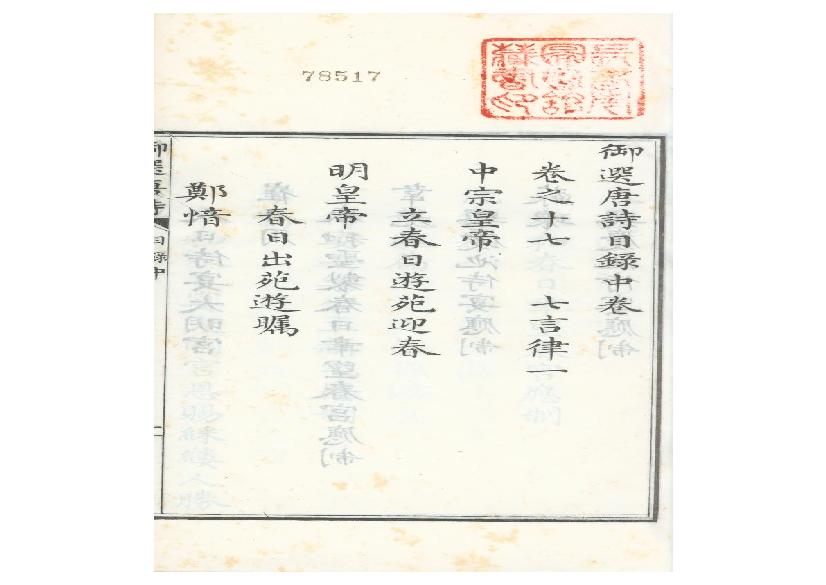 78517
御選唐詩目録中卷
卷之十七　七言律一
中宗皇帝
立春日遊苑迎春
明皇帝
春日出苑遊矚
鄭愔
御選唐詩
目録中
一